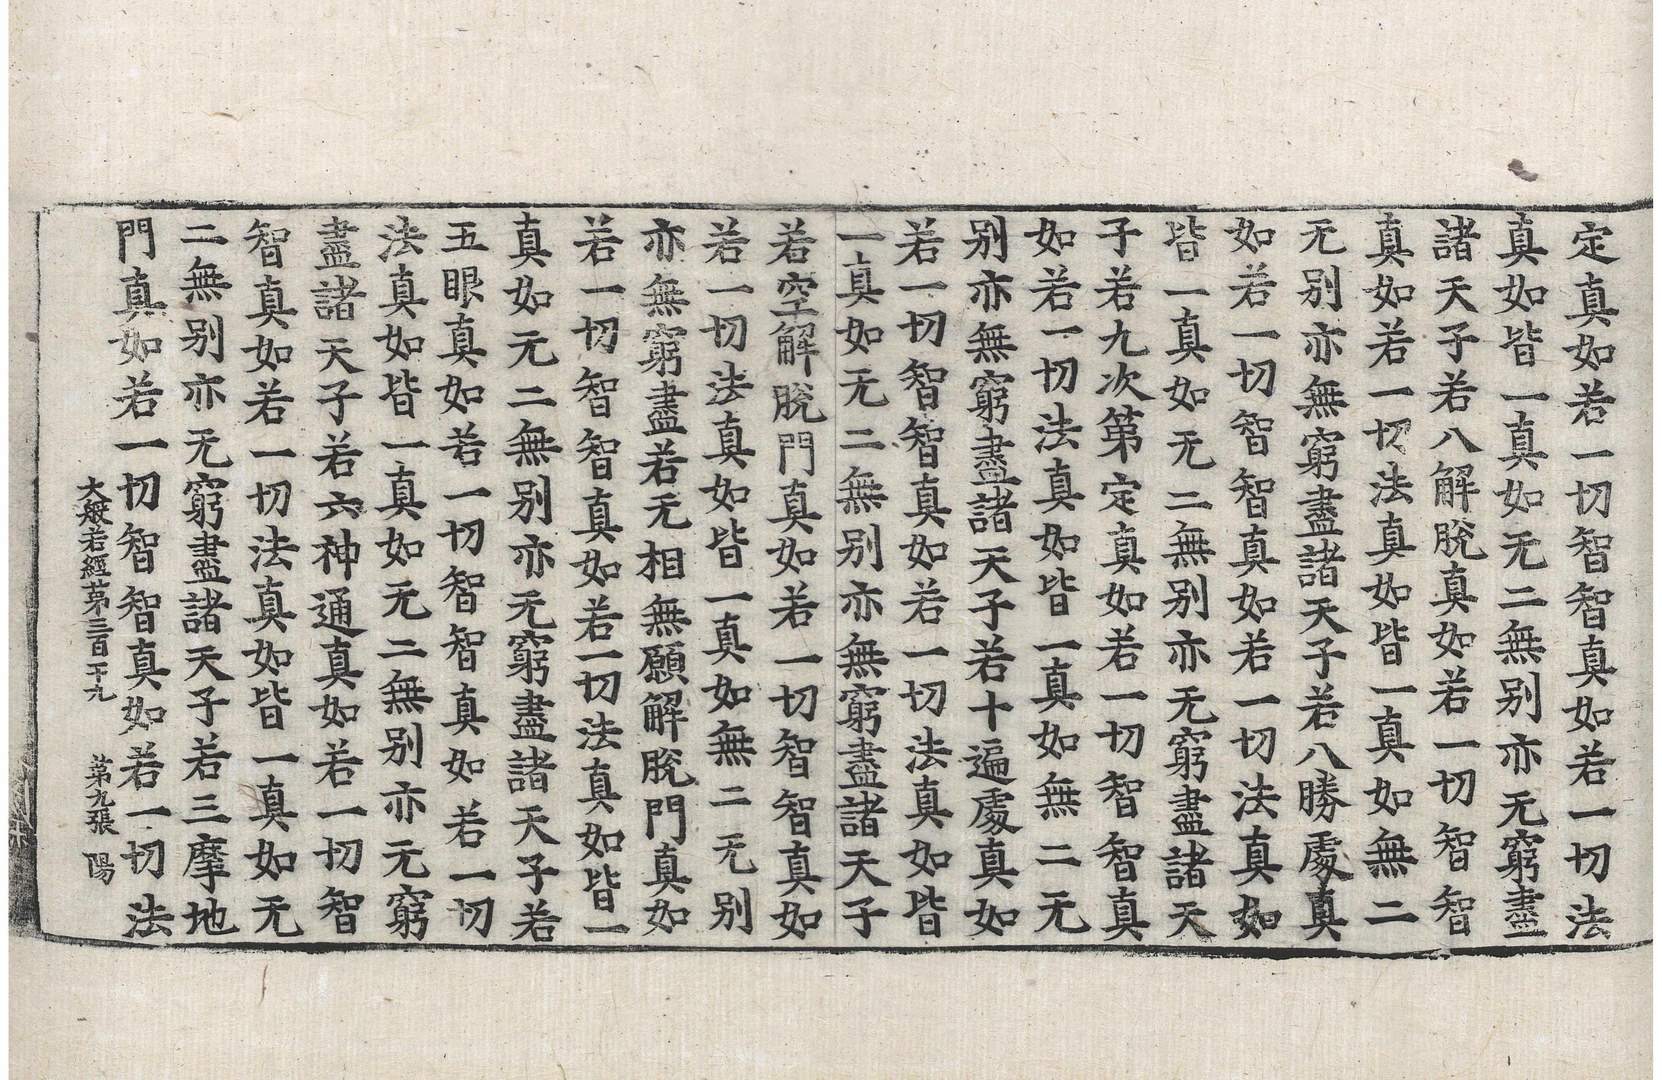 定真如若一切智智真如若一切法
真如皆一真如无二無别亦无窮盡
諸天子若八解脫真如若一切智智
真如若一切法真如皆一真如無二
无别亦無窮盡諸天子若八勝處真
如若一切智智真如若一切法真如
皆一真如无二無别亦无窮盡諸天
子若九次第定真如若一切智智真
如若一切法真如皆一真如無二无
别亦無窮盡諸天子若十遍處真如
若一切智智真如若一切法真如皆
一真如无二無别亦無窮盡諸天子
若空解脫門真如若一切智智真如
若一切法真如皆一真如無二无别
亦無窮盡若无相無願解脫門真如
若一切智智真如若一切法真如皆一
真如无二無别亦无窮盡諸天子若
五眼真如若一切智智真如若一切
法真如皆一真如无二無别亦无窮
盡諸天子若六神通真如若一切智
智真如若一切法真如皆一真如无
二無别亦无窮盡諸天子若三摩地
門真如若一切智智真如若一切法
大般若經第三百十九 第九張 陽